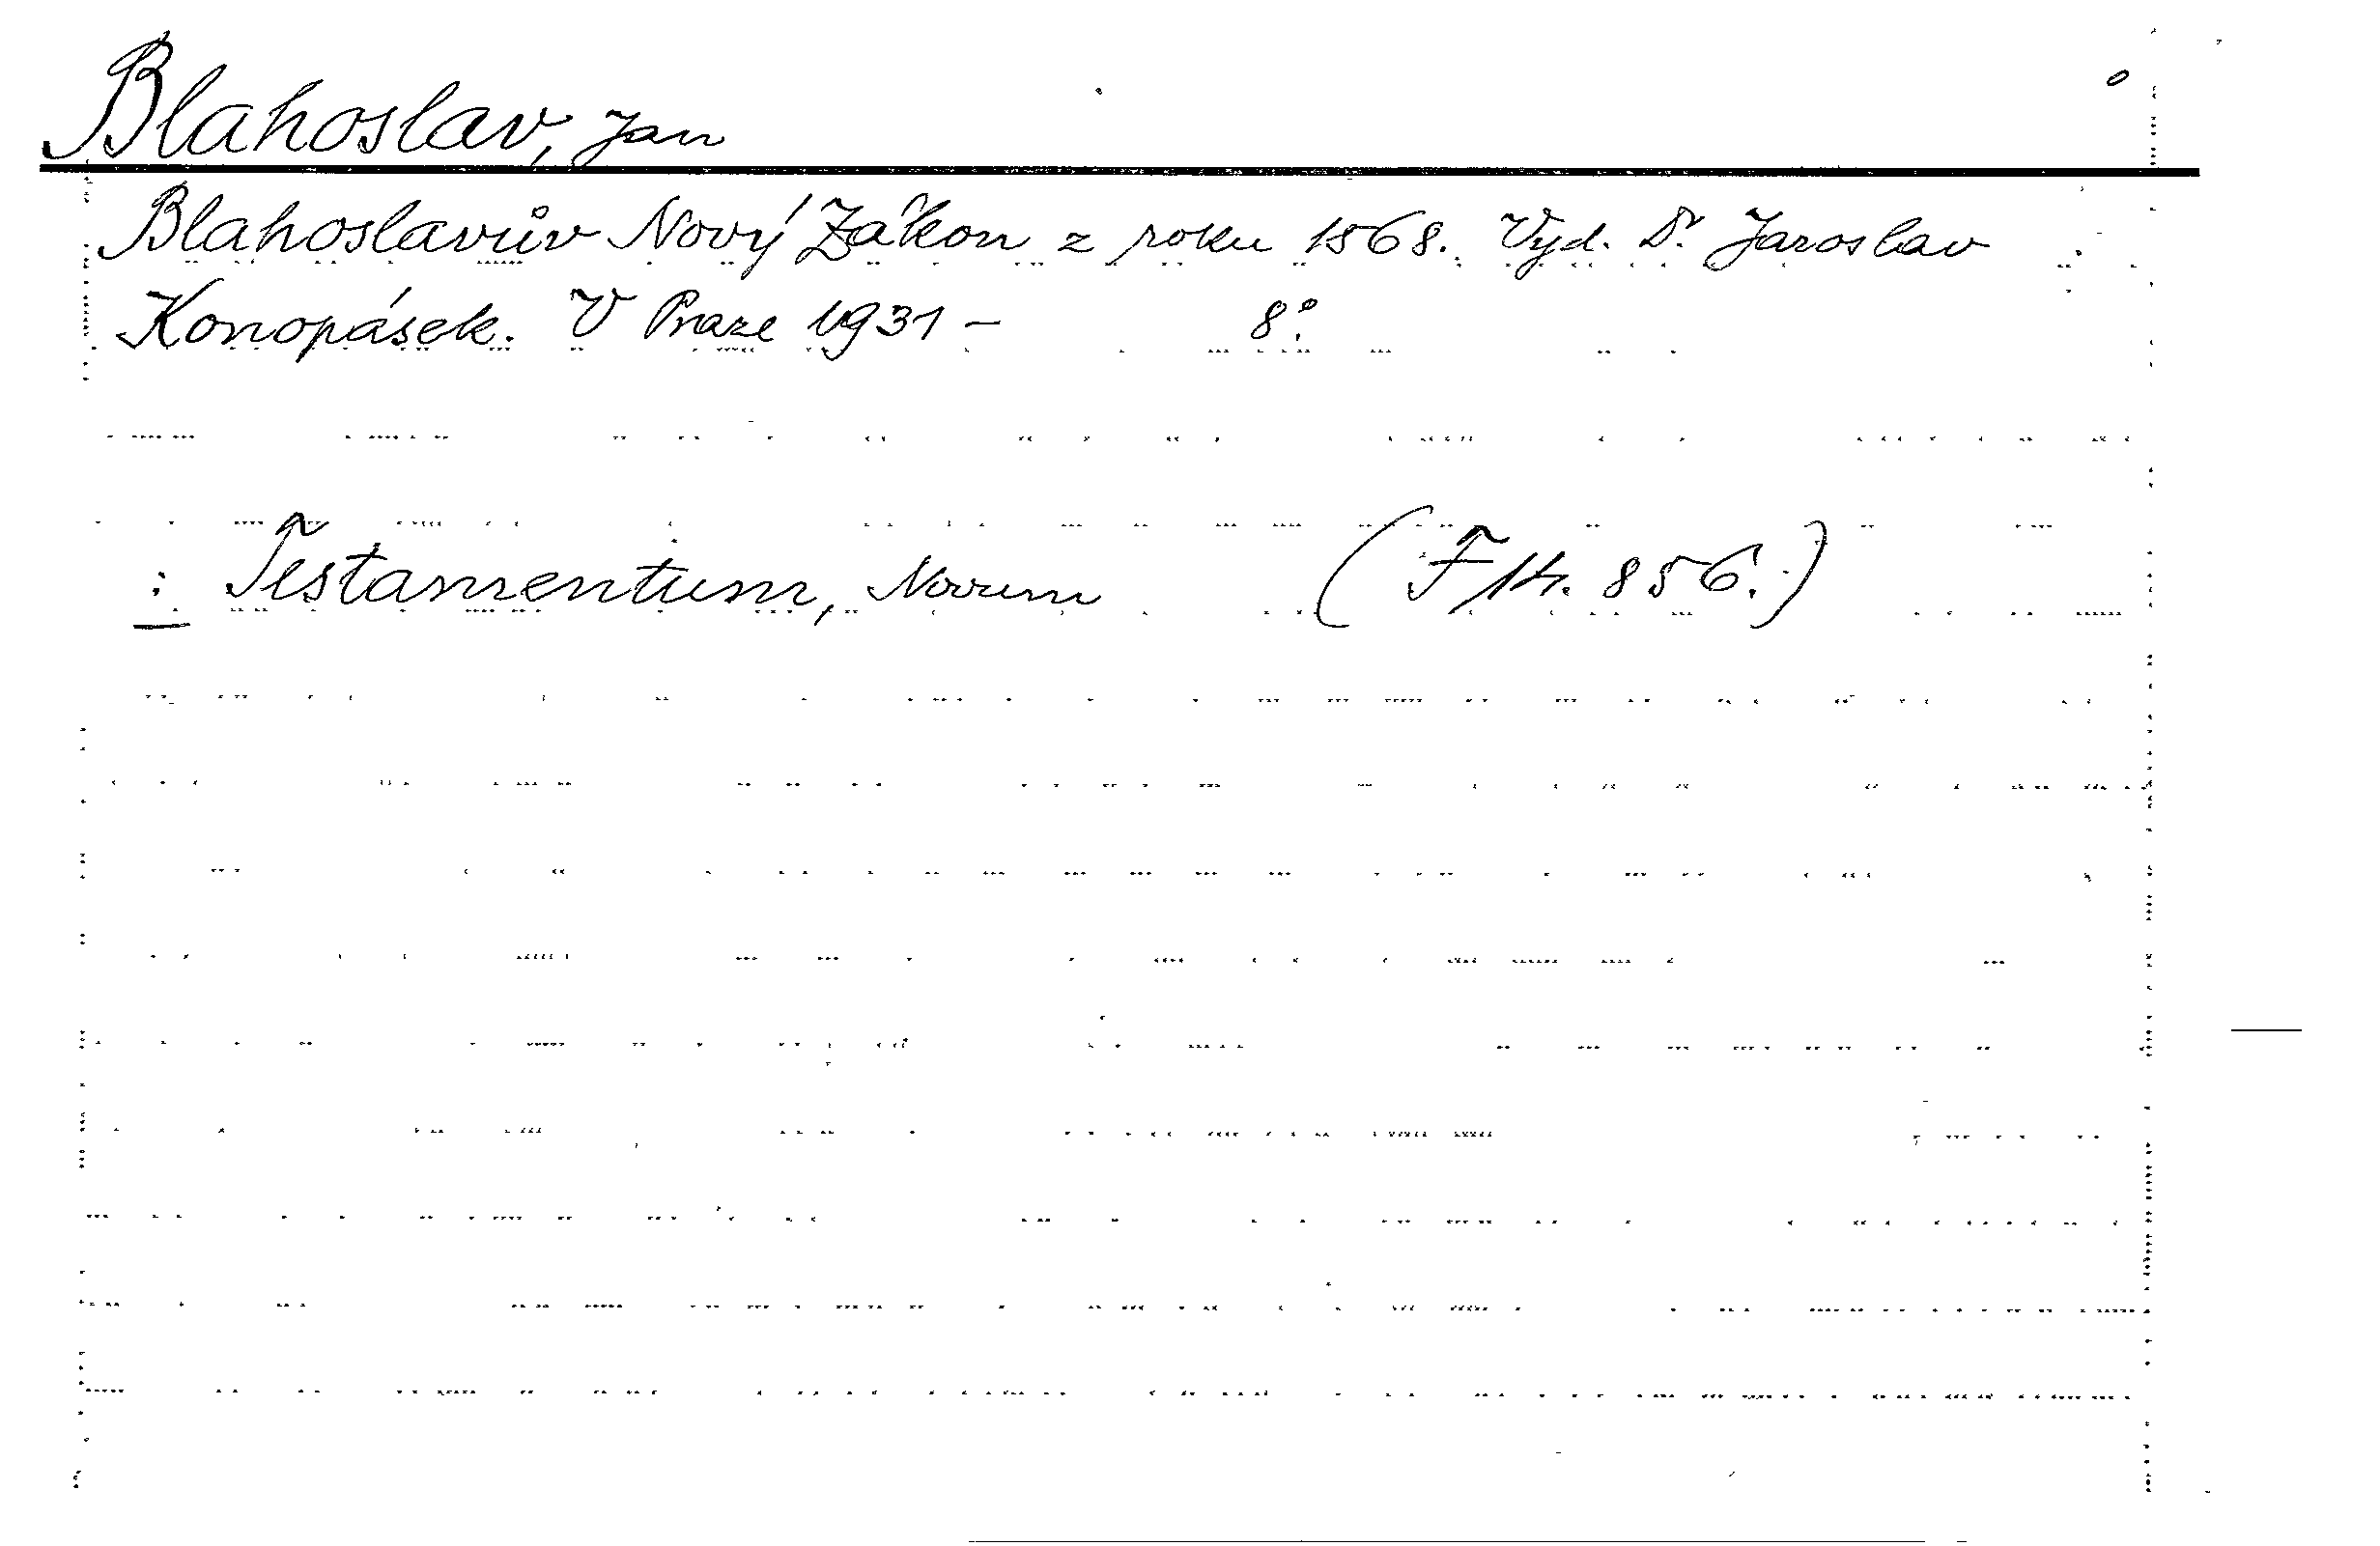 Blahoslav, Jan
Blahoslavův Nový Zákon z roku 1568. Vyd. Dr. Jaroslav
Konopásek. V Praze 1931 – 8°.
: Testamentum, Novum (F 14. 856.)